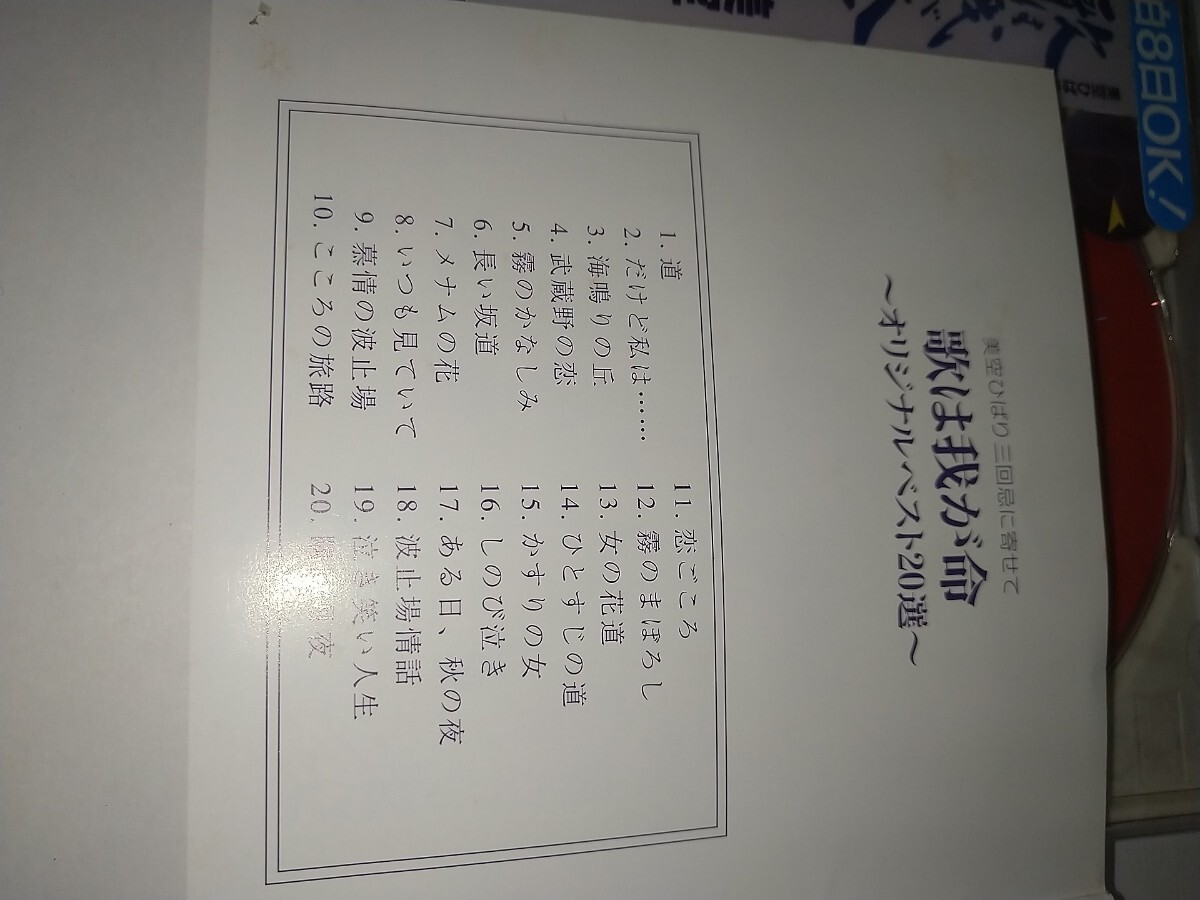 美空ひばり 三回忌に寄せて
歌は我が命
～オリジナルベスト20選～
1. 道
2. だけど私は……
3. 海鳴りの丘
4. 武蔵野の恋
5. 霧のかなしみ
6. 長い坂道
7. メナムの花
8. いつも見ていて
9. 慕情の波止場
10. こころの旅路
11. 恋ごころ
12. 霧のまぼろし
13. 女の花道
14. ひとすじの道
15. かすりの女
16. しのび泣き
17. ある日、秋の夜
18. 波止場情話
19. 泣き笑い人生
20. 夜
白8日OK!